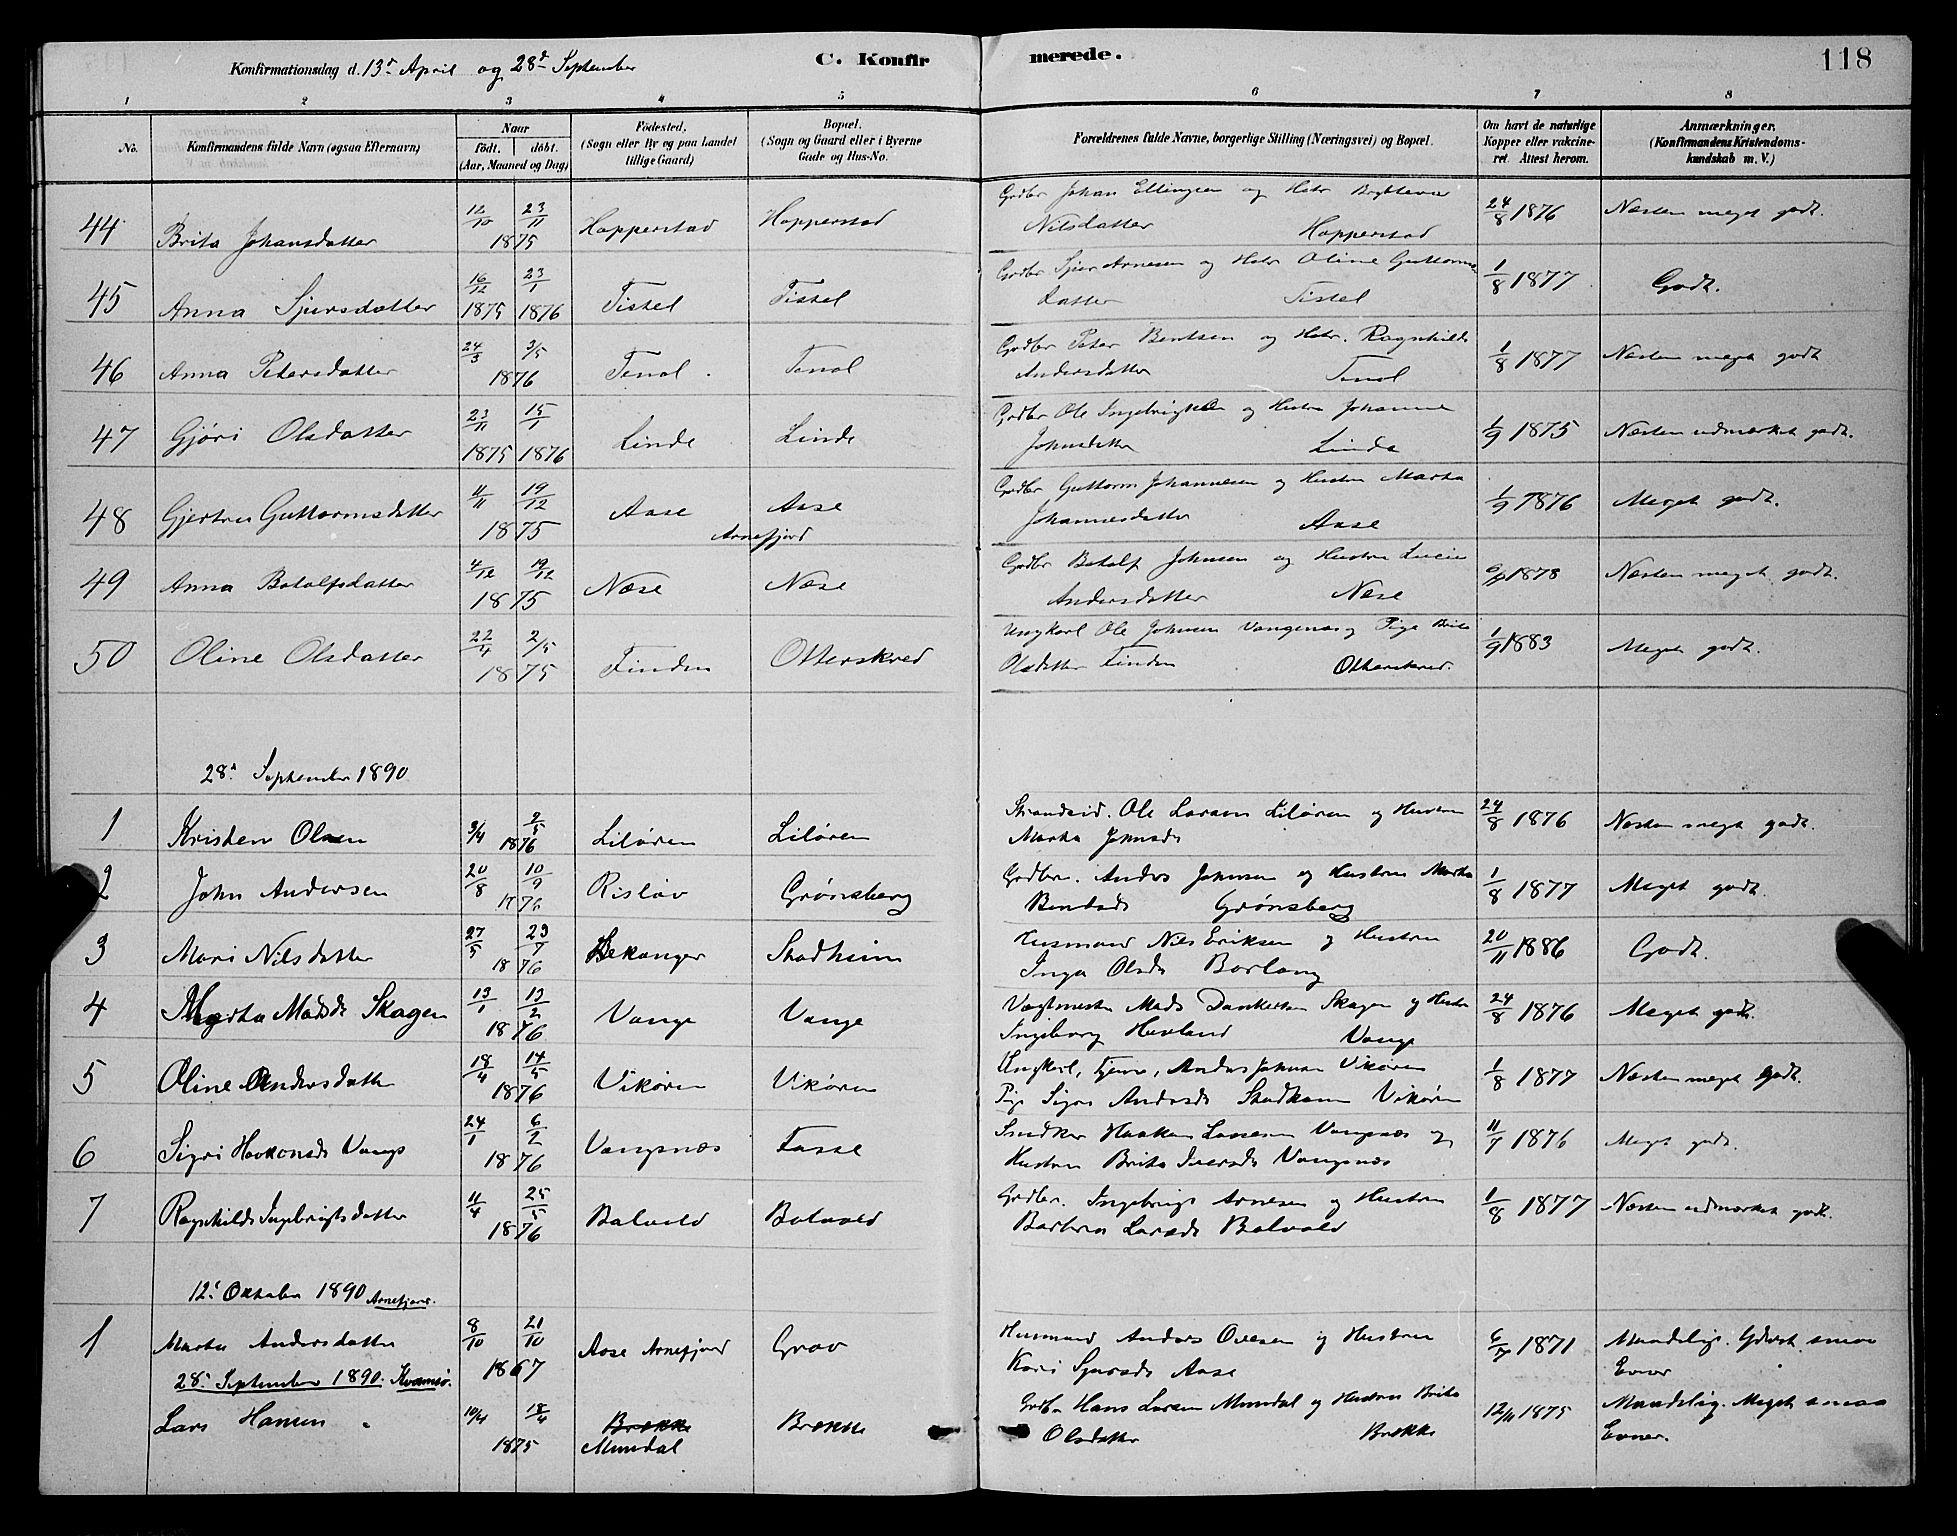 Konfirmationsdag d. 13de April og 28de September
C. Konfirmerede.
118
1 2 3 4 5 6 7 8
No.
Konfirmandens fulde Navn (ogsaa Efternavn)
Naar
födt. döbt.
(Aar, Maaned og Dag)
Födested. (Sogn eller By og paa Landet tillige Gaard)
Bopæl. (Sogn og Gaard eller i Byerne Gade og Hus-No.
Forældrenes fulde Navne, borgerlige Stilling (Næringsvei) og Bopæl.
Om havt de naturlige Kopper eller vakcineret. Attest herom.
Anmærkninger. (Konfirmandens Kristendomskundskab m. V.)
44 Brita Johansdatter 12/10 23/11 1875 Hopperstad Hopperstad Grdbr Johan Ellingsen og Hstr
Nilsdatter Hopperstad 24/8 1876 Næsten meget godt.
45 Anna Sjursdatter 16/12 1875 23/1 1876 Tistel Tistel Grdbr Sjur Arnesen og Hstr Oline Guttorms
datter Tistel 1/8 1877 Godt.
46 Anna Petersdatter 24/3 3/5 1876 Tenol Tenol Grdbr Peter Bentsen og Hstr. Ragnhild
Andersdatter Tenol 1/8 1877 Næsten meget godt
47 Gjøri Olsdatter 23/11 1875 15/1 1876 Linde Linde Grdbr Ole Ingebrigtsen og Hustru Johanne
Johnsdatter Linde 1/9 1875 Næsten udmærket godt.
48 Gjertru Guttormsdatter 11/11 19/12 1875 Aase Aase Grdbr Guttorm Johannesen og Hustru Marta
Arnefjord
Johannesdatter Aase 1/9 1876 Meget godt.
49 Anna Botolfsdatter 4/12 19/12 1875 Næse Næse Grdbr Botolf Johnsen og Hustru Lucie
Andersdatter Næse 1878 Næsten meget godt.
50 Oline Olsdatter 22/4 2/5 1875 Finden Otterskred Ungkarl Ole Johnsen Vangsnes og Pige Brita
Olsdatter Finden Otterskred. 1/9 1883 Meget godt.
28de September 1890
1 Kristen Olsen 3/4 2/5 1876 Liløren Liløren Strandsid. Ole Larsen Liløren og Hustru
Marta Johnsd. 24/8 1876 Næsten meget godt.
2 John Andersen 20/8 10/9 1876 Risløv Grønsberg Grdbr. Anders Johnsen og Hustru Marta
Bentsd. Grønsberg 1/8 1877 Meget godt.
3 Mari Nilsdatter 27/5 23/7 1876 Lekanger Stadheim Husmand Nils Eriksen og Hustru
Inga Olsd. Borlaug 20/11 1886 Godt.
4 Marta Madsd. Skagen 13/1 13/2 1876 Vange Vange Vagtmester Mads Dankertsen Skagen og Hustru
Ingeborg Hovland Vange 24/8 1876 Meget godt.
5 Oline Andersdatter 18/4 14/5 1876 Vikøren Vikøren Ungkarl, Tjener, Anders Johnsen Vikøren
Pige Sigri Andersd. Vikøren 1/8 1877 Næsten meget godt.
6 Sigri Haakonsd. Vangs 24/1 6/2 1876 Vangsnæs Fasse Snedker Haakon Larsen Vangsnæs og
Hustru Brita Iversd. Vangsnæs 11/7 1876 Meget godt.
7 Ragnhild Ingebrigtsdatter 11/4 25/5 1876 Bolvold Bolvold Grdbr. Ingebrigt Arnesen og Hustru
Barbra Larsd. Bolvold 1/8 1877 Næsten udmærket godt.
12te Oktober 1890 Arnefjord.
1 Marta Andersdatter 8/10 21/10 1867 Aase Arnefjord Grov Husmand Anders Olesen og Hustru
Kari Sjursd. Aase 6/7 1871 Maadelig. Yderst smaa
Evner
28de September 1890. Kvamsø.
Lars Hansen 10/4 18/4 1875 Brekke Mundal Brekke Grdbr Hans Larsen Mundal og Hustru Brita
Olsdatter Brekke 12/11 1875 Maadelig. Meget smaa
Evner.